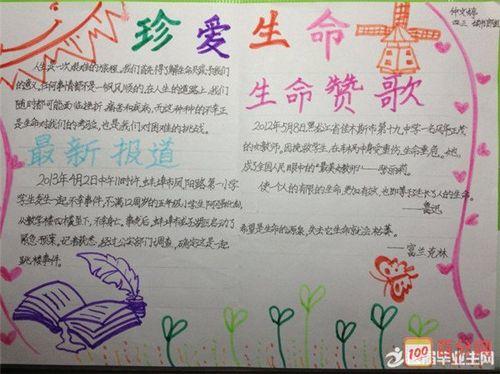 珍爱生命
钟文婷
四三
人生是一次艰难的旅程。我们首先得了解生命只属于我们
的意义,任何事情都不是一帆风顺的,在人生的道路上,我们
随时都可能面临挫折、痛苦和疾病,而这种种的不幸正
是生命对我们的考验,也是我们对困难的挑战。
最新报道
2013年4月2日中午1时许,蚌埠市凤阳路第一小学
学生发生一起不幸事件。不满12周岁的五年级小学生阿
从教学楼四楼坠下,不幸身亡。事发后,蚌埠市启动了
紧急预案。记者获悉,经过公安部门调查,确定这是一起
跳楼事件。
生命赞歌
2012年5月8日黑龙江省佳木斯市第十九中学一名风华正茂
的女教师,因挽救学生,在车祸中身受重伤,生命垂危。她,
成了全国人民眼中的“最美女教师”——张丽莉。
使一个人的有限的生命,更加有效,也即等于延长了人的生命。
——鲁迅
希望是生命的源泉,失去它生命就会枯萎。
——富兰克林
100
毕业主网